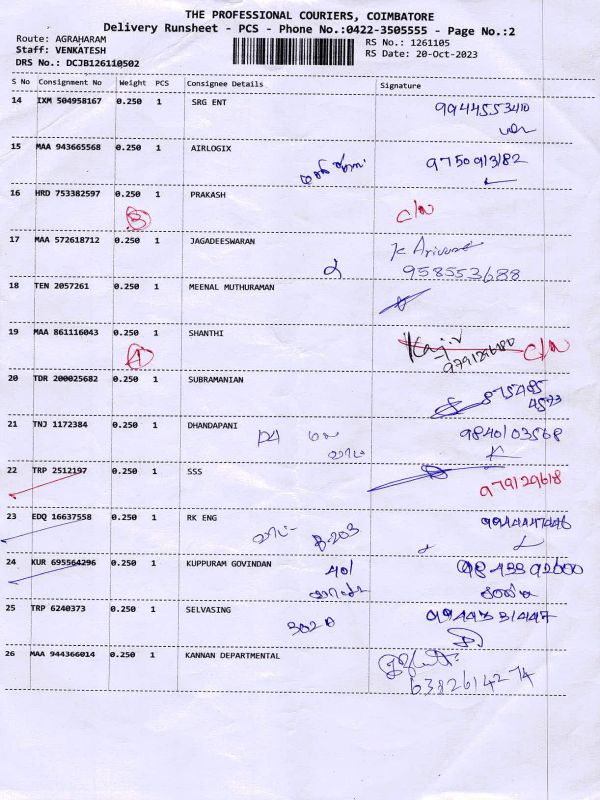 THE PROFESSIONAL COURIERS, COIMBATORE
Delivery Runsheet - PCS - Phone No.:0422-3505555 - Page No.:2
Route: AGRAHARAM
Staff: VENKATESH
DRS No.: DCJB126110502
RS No.: 1261105
RS Date: 20-Oct-2023
S No Consignment No Weight PCS Consignee Details Signature
14 IXM 504958167 0.250 1 SRG ENT 9944553410
15 MAA 943665568 0.250 1 AIRLOGIX 9750913182
16 HRD 753382597 0.250 1 PRAKASH C/N
3
17 MAA 572618712 0.250 1 JAGADEESWARAN
9585553688
18 TEN 2057261 0.250 1 MEENAL MUTHURAMAN
19 MAA 861116043 0.250 1 SHANTHI C/N
4
20 TDR 200025682 0.250 1 SUBRAMANIAN 875485
4593
21 TNJ 1172384 0.250 1 DHANDAPANI 9840103568
22 TRP 2512197 0.250 1 SSS
23 EDQ 16637558 0.250 1 RK ENG
B-203
24 KUR 695564296 0.250 1 KUPPURAM GOVINDAN 401
25 TRP 6240373 0.250 1 SELVASING
302
26 MAA 944366014 0.250 1 KANNAN DEPARTMENTAL
6382614274